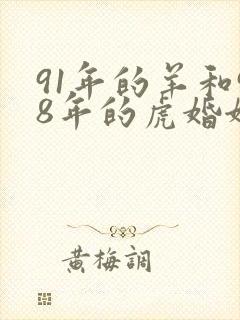 91年的羊和
8年的虎婚
黄梅調